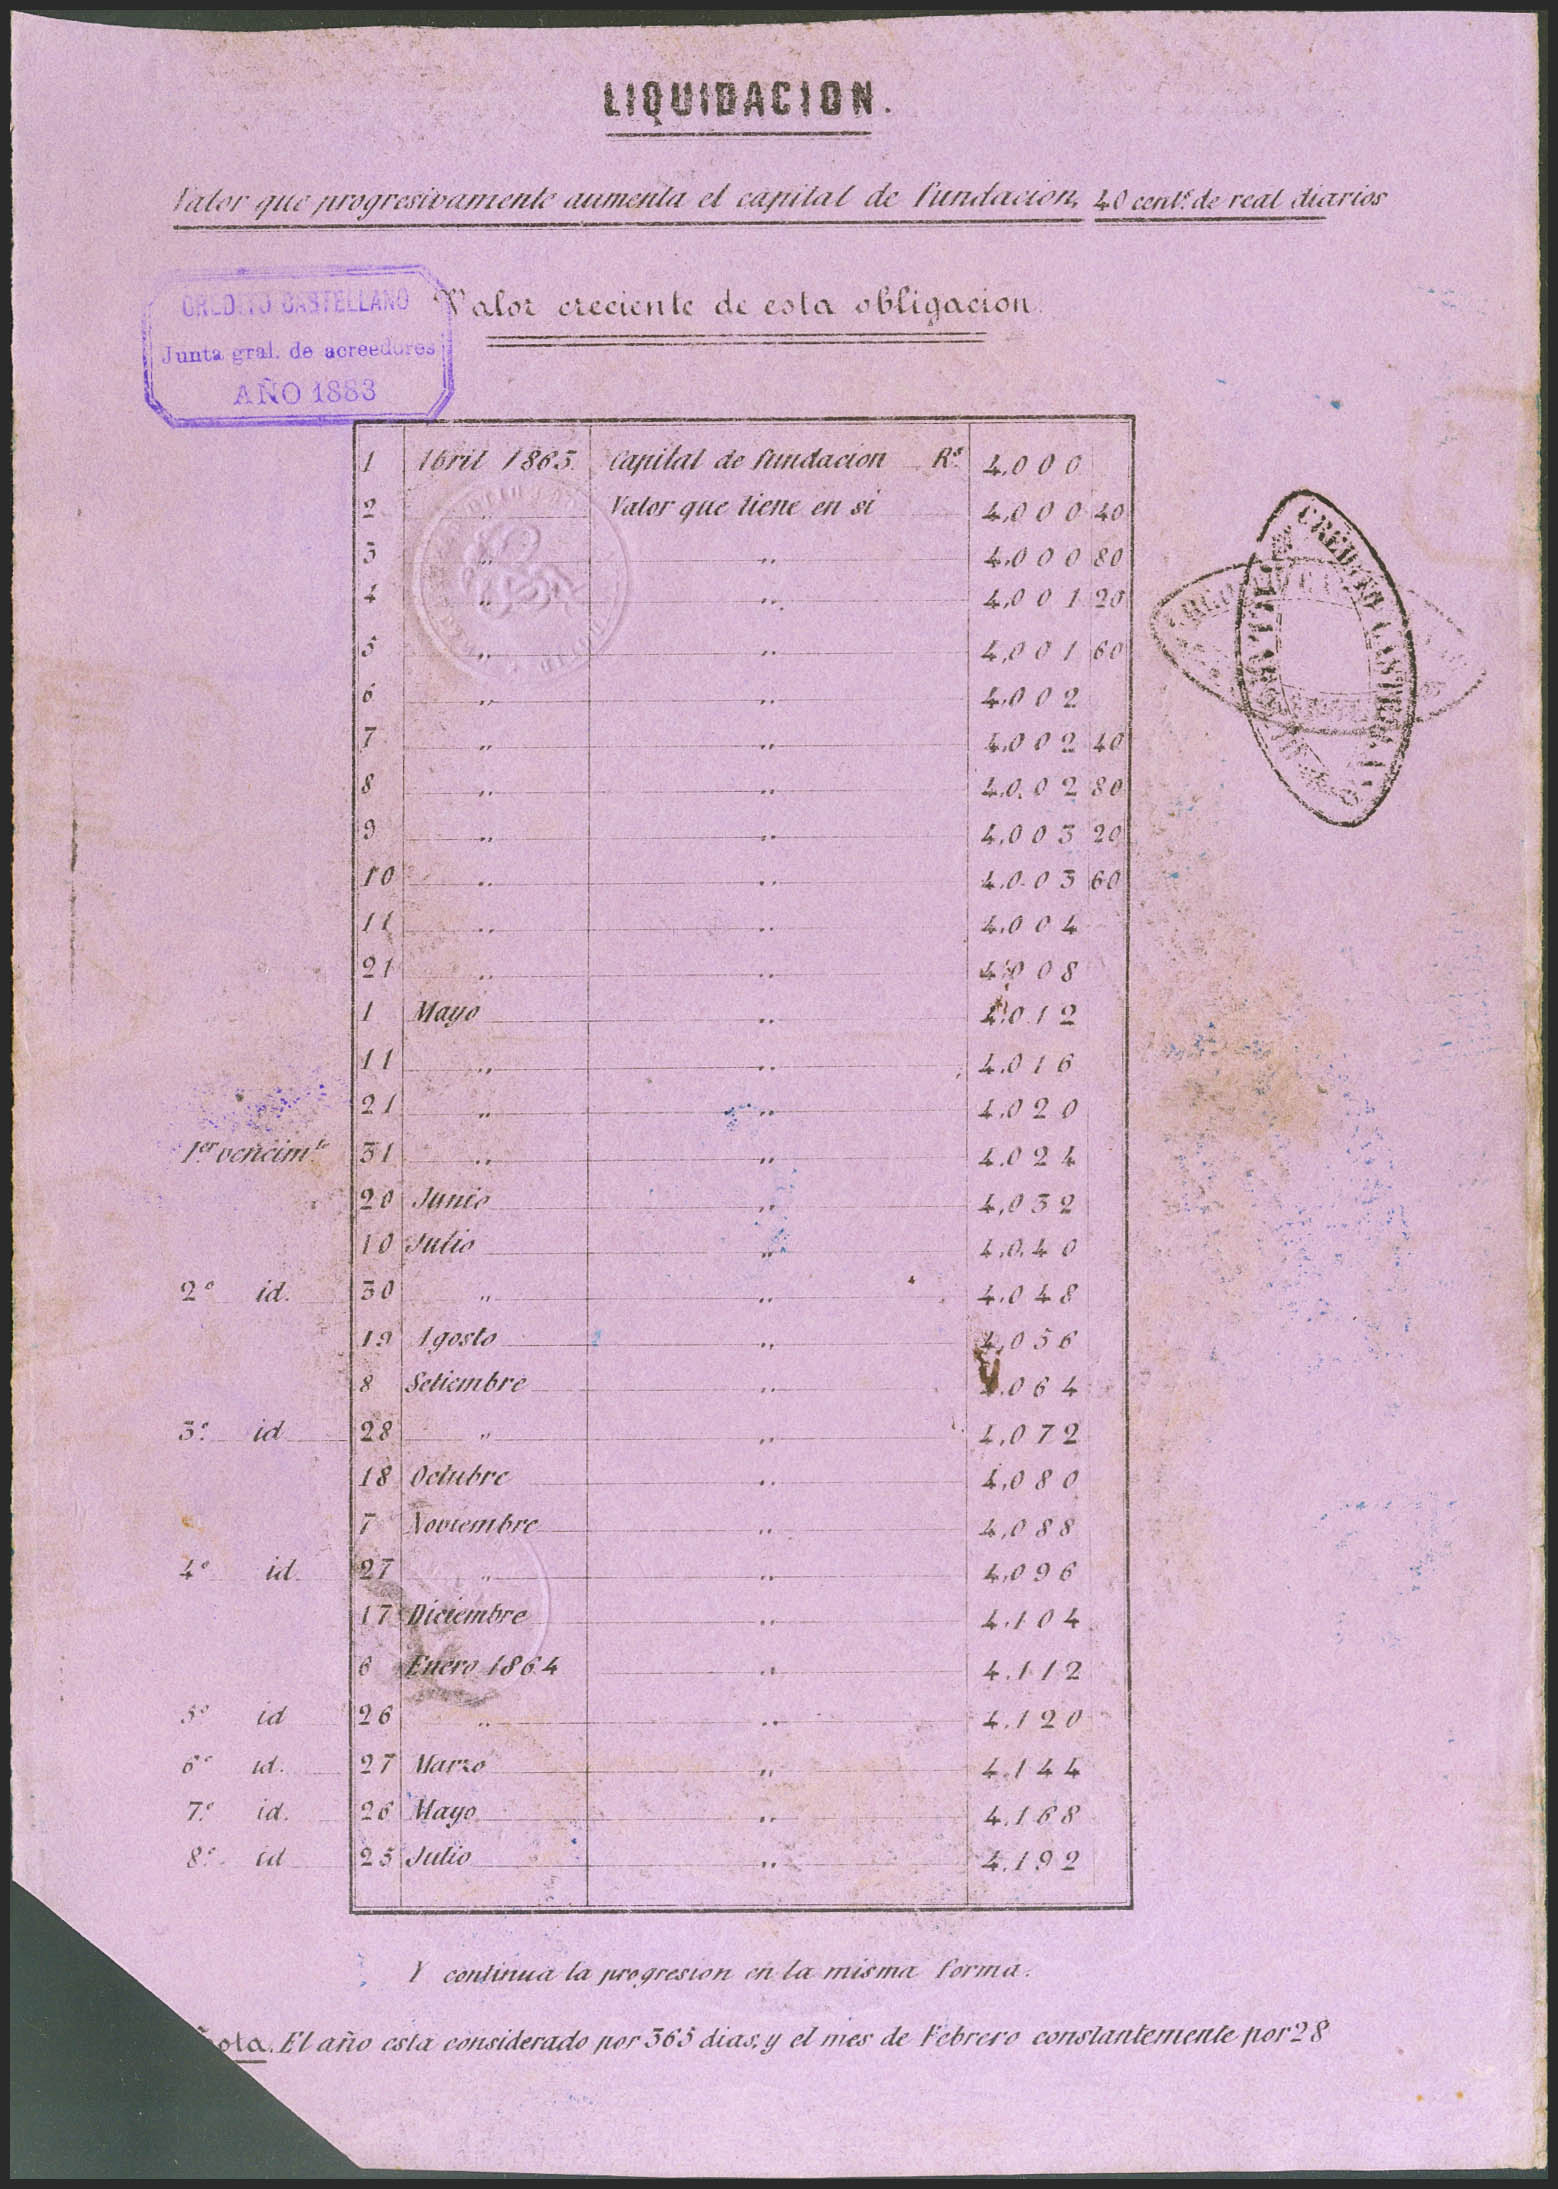 LIQUIDACION.
Valor que progresivamente aumenta el capital de fundacion, 40 cent.s de real diarios
CREDITO CASTELLANO
Junta gral. de acreedores
AÑO 1883
Valor creciente de esta obligacion.
1 Abril 1863. Capital de fundacion Rs. 4,000
2 ,, Valor que tiene en si 4,000 40
3 ,, ,, 4,000 80
4 ,, ,, 4,001 20
5 ,, ,, 4,001 60
6 ,, ,, 4,002
7 ,, ,, 4,002 40
8 ,, ,, 4,002 80
9 ,, ,, 4,003 20
10 ,, ,, 4,003 60
11 ,, ,, 4,004
21 ,, ,, 4,008
1 Mayo ,, 4,012
11 ,, ,, 4,016
21 ,, ,, 4,020
1er vencim.to 31 ,, ,, 4,024
20 Junio ,, 4,032
10 Julio ,, 4,040
2º id. 30 ,, ,, 4,048
19 Agosto ,, 4,056
8 Setiembre ,, 4,064
3º id 28 ,, ,, 4,072
18 Octubre ,, 4,080
7 Noviembre ,, 4,088
4º id. 27 ,, ,, 4,096
17 Diciembre ,, 4,104
6 Enero 1864 ,, 4,112
5º id 26 ,, ,, 4,120
6º id. 27 Marzo ,, 4,144
7º id. 26 Mayo ,, 4,168
8º id 25 Julio ,, 4,192
CREDITO CASTELLANO
Y continua la progresion en la misma forma.
ota. El año esta considerado por 365 dias, y el mes de Febrero constantemente por 28